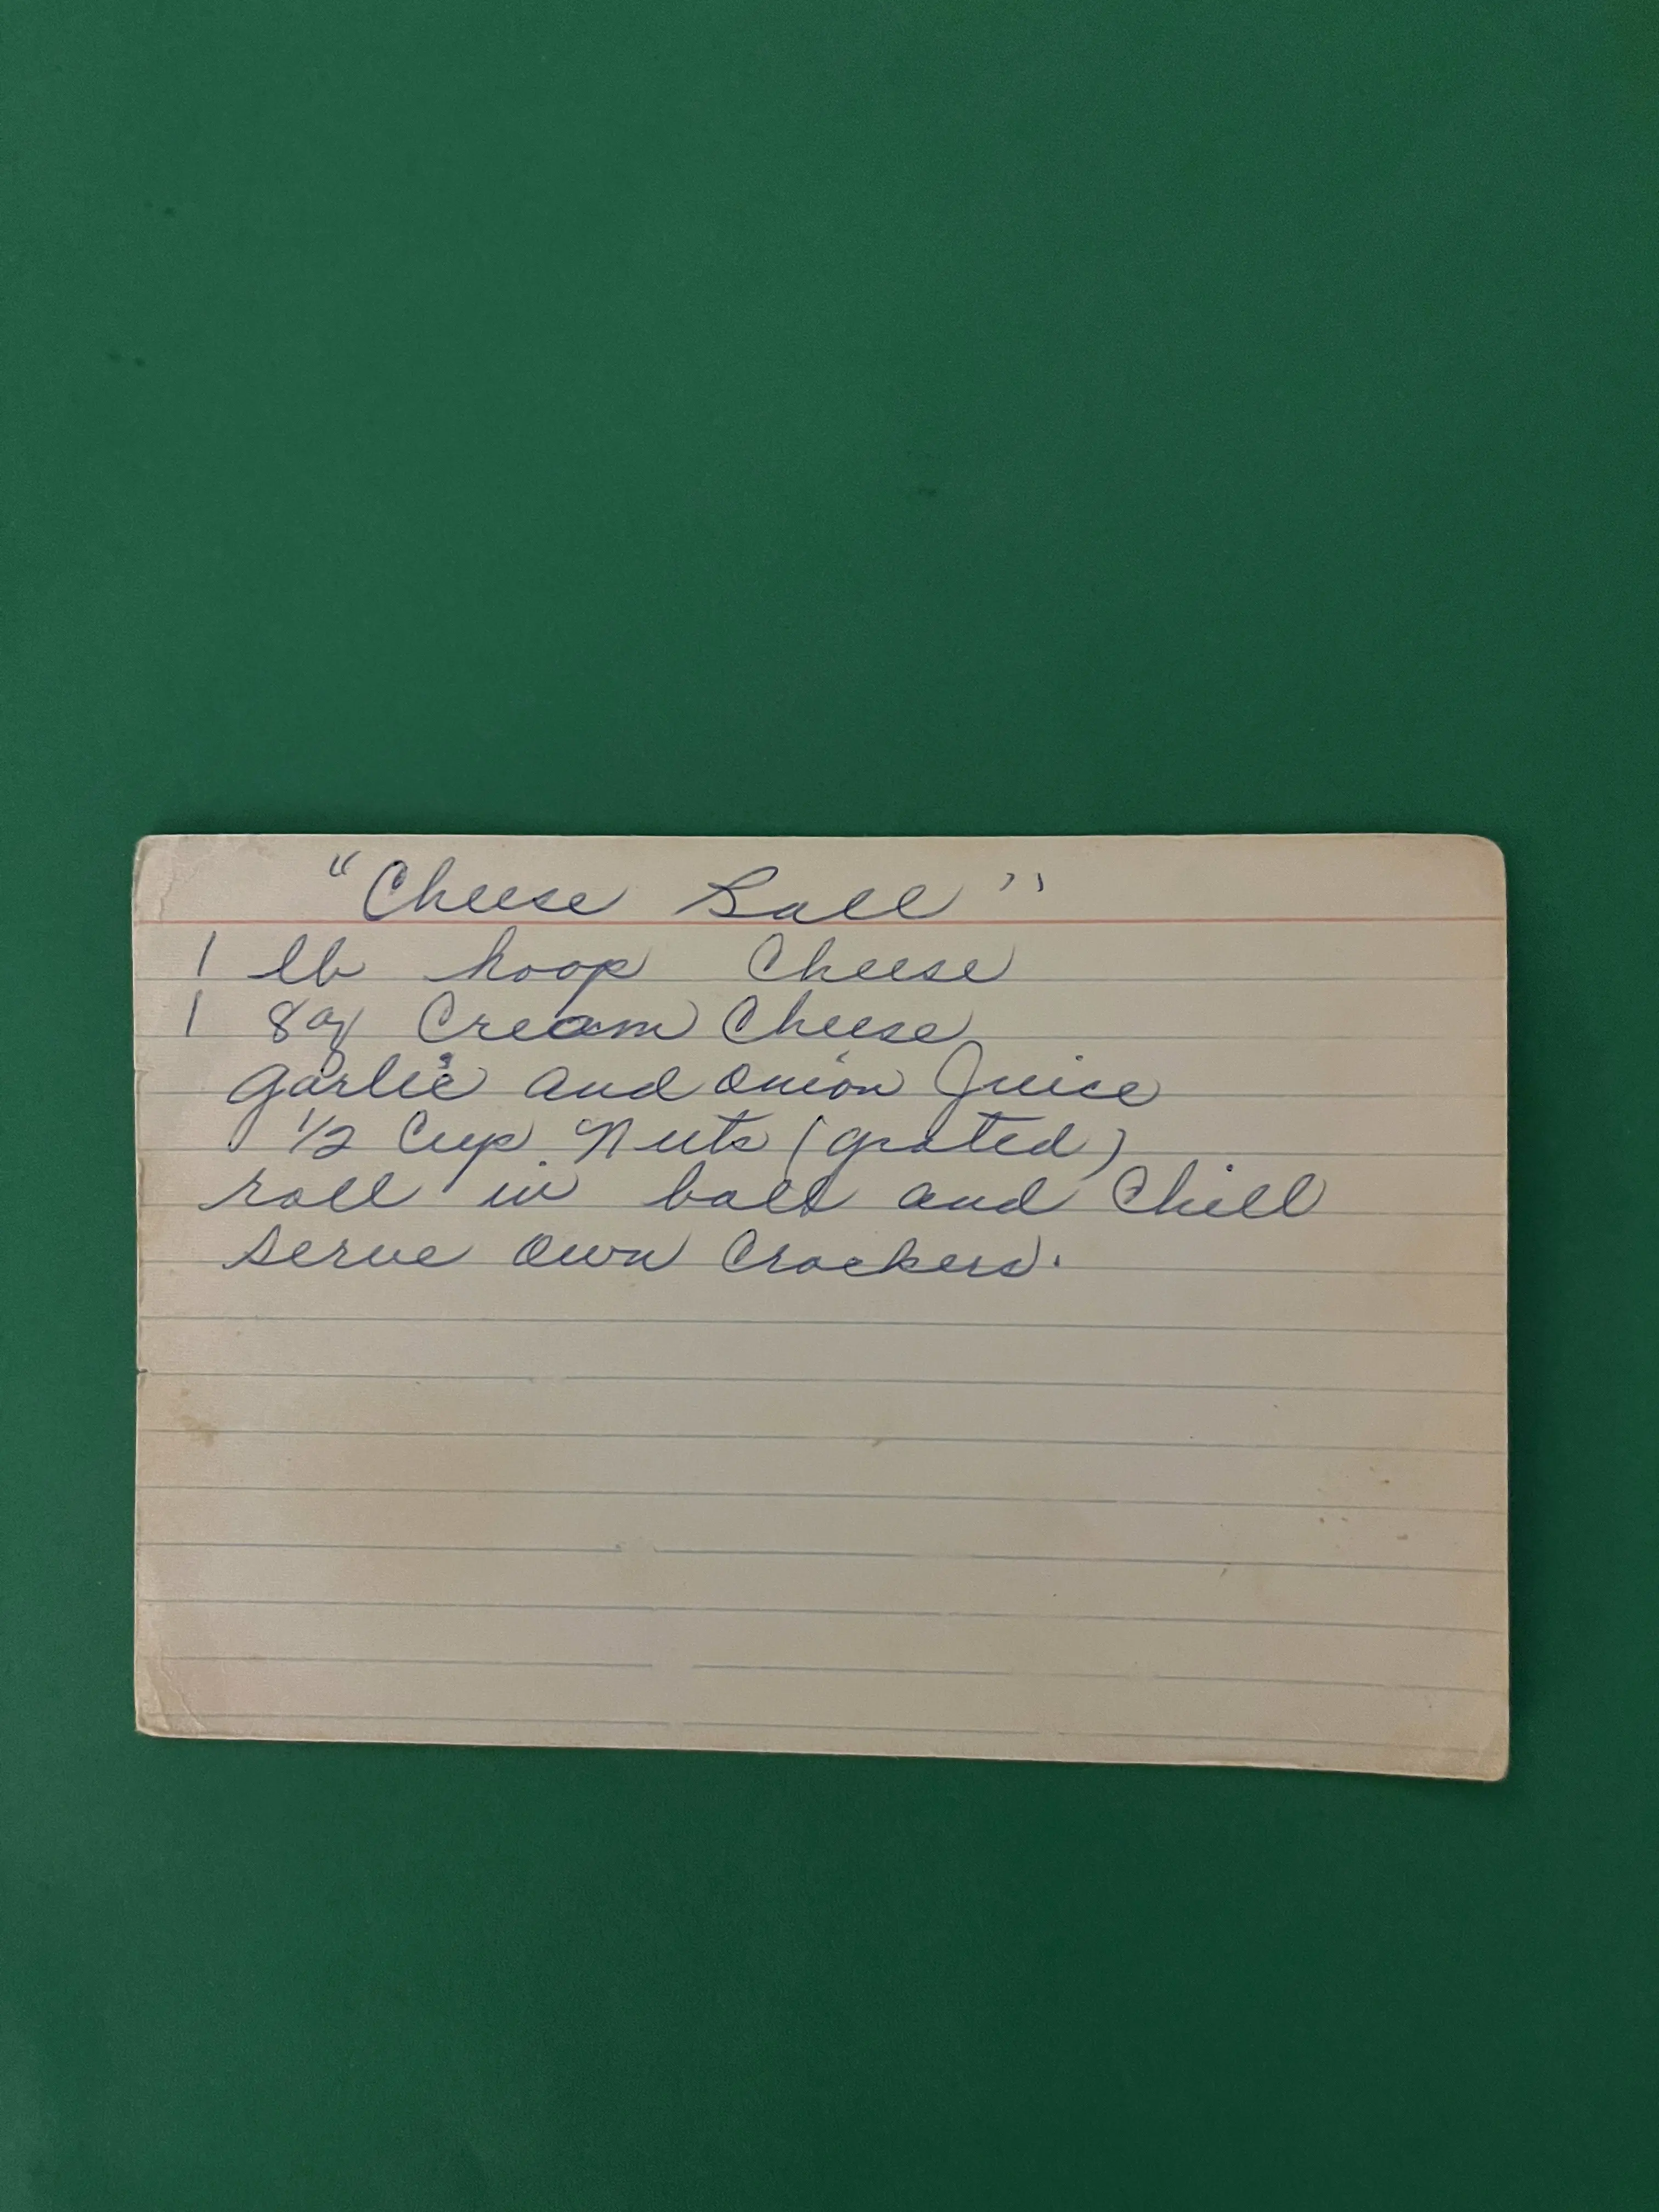 "Cheese Ball"
1 lb hoop Cheese
1 8oz Cream Cheese
garlic and onion Juice
1/2 Cup Nuts (grated)
roll in ball and Chill
serve own Crackers.